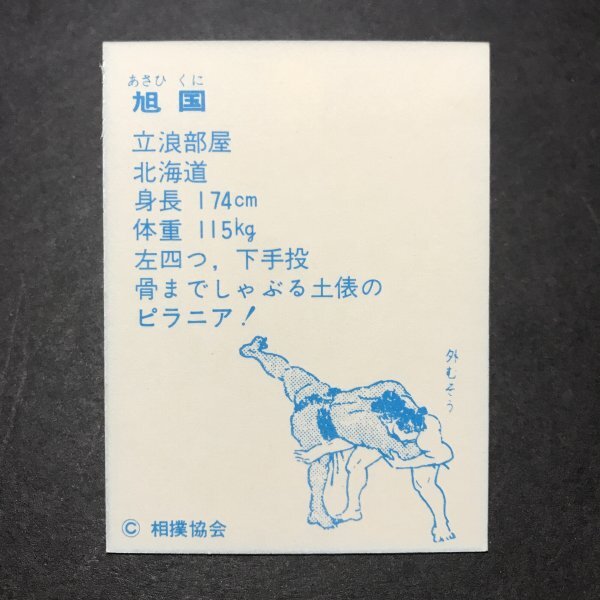 あさひ くに
旭国
立浪部屋
北海道
身長 174cm
体重 115kg
左四つ，下手投
骨までしゃぶる土俵の
ピラニア！
外むそう
© 相撲協会